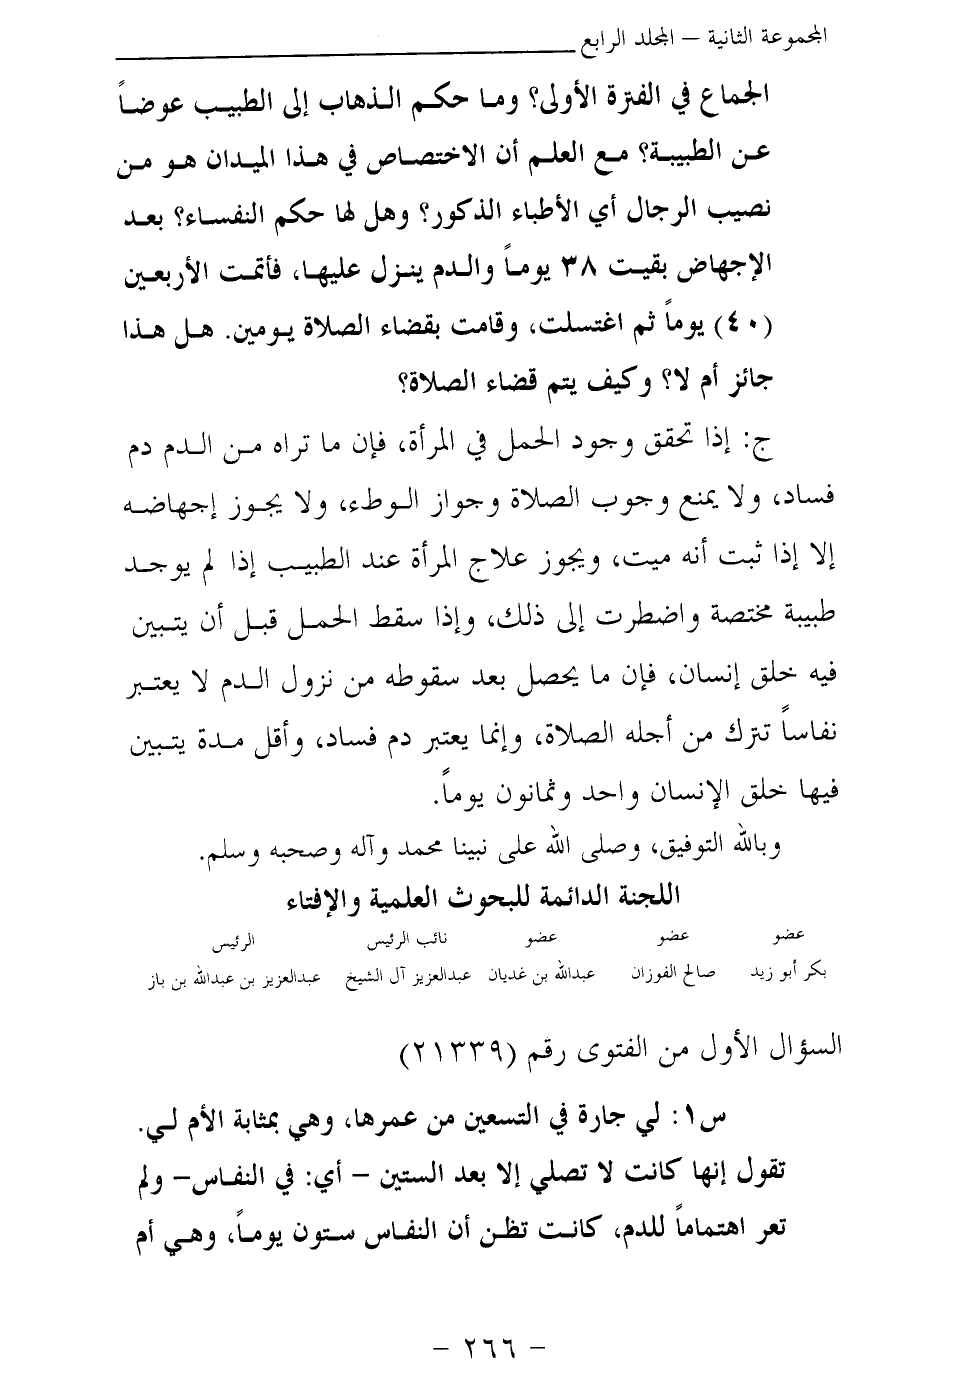 المجموعة الثانية – المجلد الرابع
الجماع في الفترة الأولى؟ وما حكم الذهاب إلى الطبيب عوضاً
عن الطبيبة؟ مع العلم أن الاختصاص في هذا الميدان هو من
نصيب الرجال أي الأطباء الذكور؟ وهل لها حكم النفساء؟ بعد
الإجهاض بقيت ٣٨ يوماً والدم ينزل عليها، فأتمت الأربعين
(٤٠) يوماً ثم اغتسلت، وقامت بقضاء الصلاة يومين. هل هذا
جائز أم لا؟ وكيف يتم قضاء الصلاة؟
ج: إذا تحقق وجود الحمل في المرأة، فإن ما تراه من الدم دم
فساد، ولا يمنع وجوب الصلاة وجواز الوطء، ولا يجوز إجهاضه
إلا إذا ثبت أنه ميت، ويجوز علاج المرأة عند الطبيب إذا لم يوجد
طبيبة مختصة واضطرت إلى ذلك، وإذا سقط الحمل قبل أن يتبين
فيه خلق إنسان، فإن ما يحصل بعد سقوطه من نزول الدم لا يعتبر
نفاساً تترك من أجله الصلاة، وإنما يعتبر دم فساد، وأقل مدة يتبين
فيها خلق الإنسان واحد وثمانون يوماً.
وبالله التوفيق، وصلى الله على نبينا محمد وآله وصحبه وسلم.
اللجنة الدائمة للبحوث العلمية والإفتاء
عضو عضو عضو نائب الرئيس الرئيس
بكر أبو زيد صالح الفوزان عبدالله بن غديان عبدالعزيز آل الشيخ عبدالعزيز بن عبدالله بن باز
السؤال الأول من الفتوى رقم (٢١٣٣٩)
س١: لي جارة في التسعين من عمرها، وهي بمثابة الأم لي.
تقول إنها كانت لا تصلي إلا بعد الستين – أي: في النفاس– ولم
تعر اهتماماً للدم، كانت تظن أن النفاس ستون يوماً، وهي أم
– ٢٦٦ –